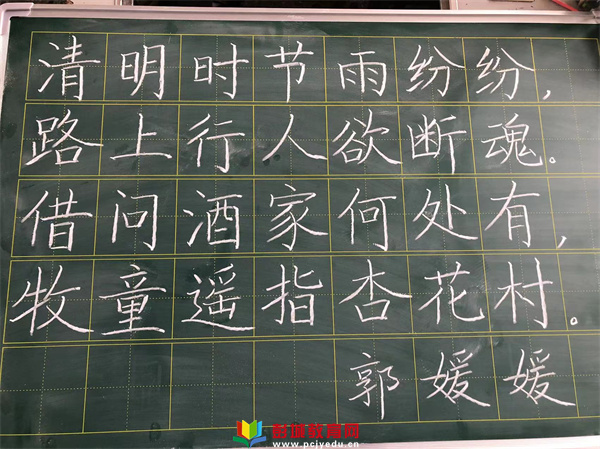 清明时节雨纷纷，
路上行人欲断魂。
借问酒家何处有，
牧童遥指杏花村。
郭媛媛
彭城教育网
www.pcjyedu.cn